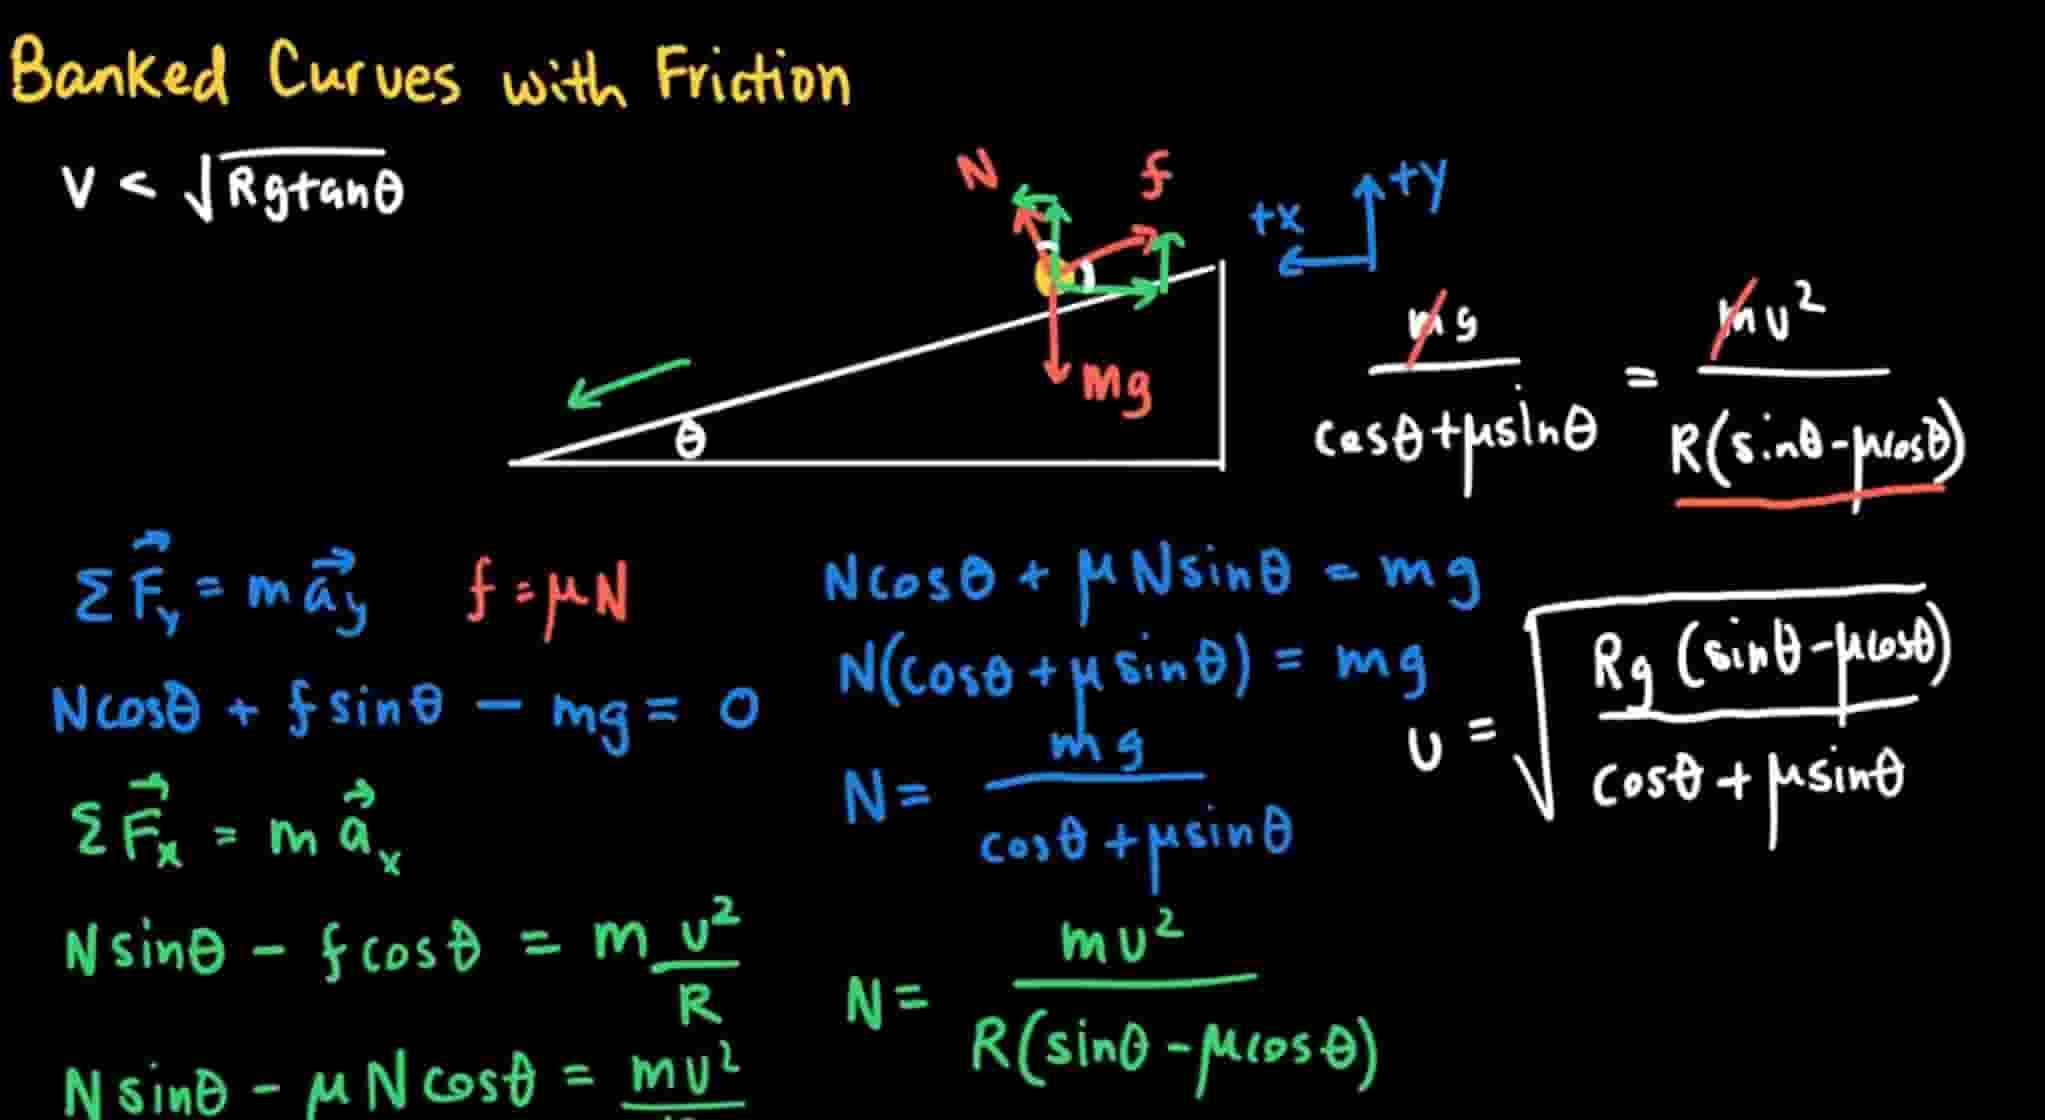 Banked Curves with Friction
v < √Rgtanθ
N
f
+y
+x
mg
θ
mg / cosθ+μsinθ = mv² / R(sinθ-μcosθ)
ΣF⃗y = ma⃗y
f = μN
Ncosθ + fsinθ - mg = 0
ΣF⃗x = ma⃗x
Nsinθ - fcosθ = m v²/R
Nsinθ - μNcosθ = mv²/
Ncosθ + μNsinθ = mg
N(cosθ + μsinθ) = mg
N = mg / cosθ + μsinθ
N = mv² / R(sinθ - μcosθ)
v = √Rg(sinθ-μcosθ) / cosθ + μsinθ